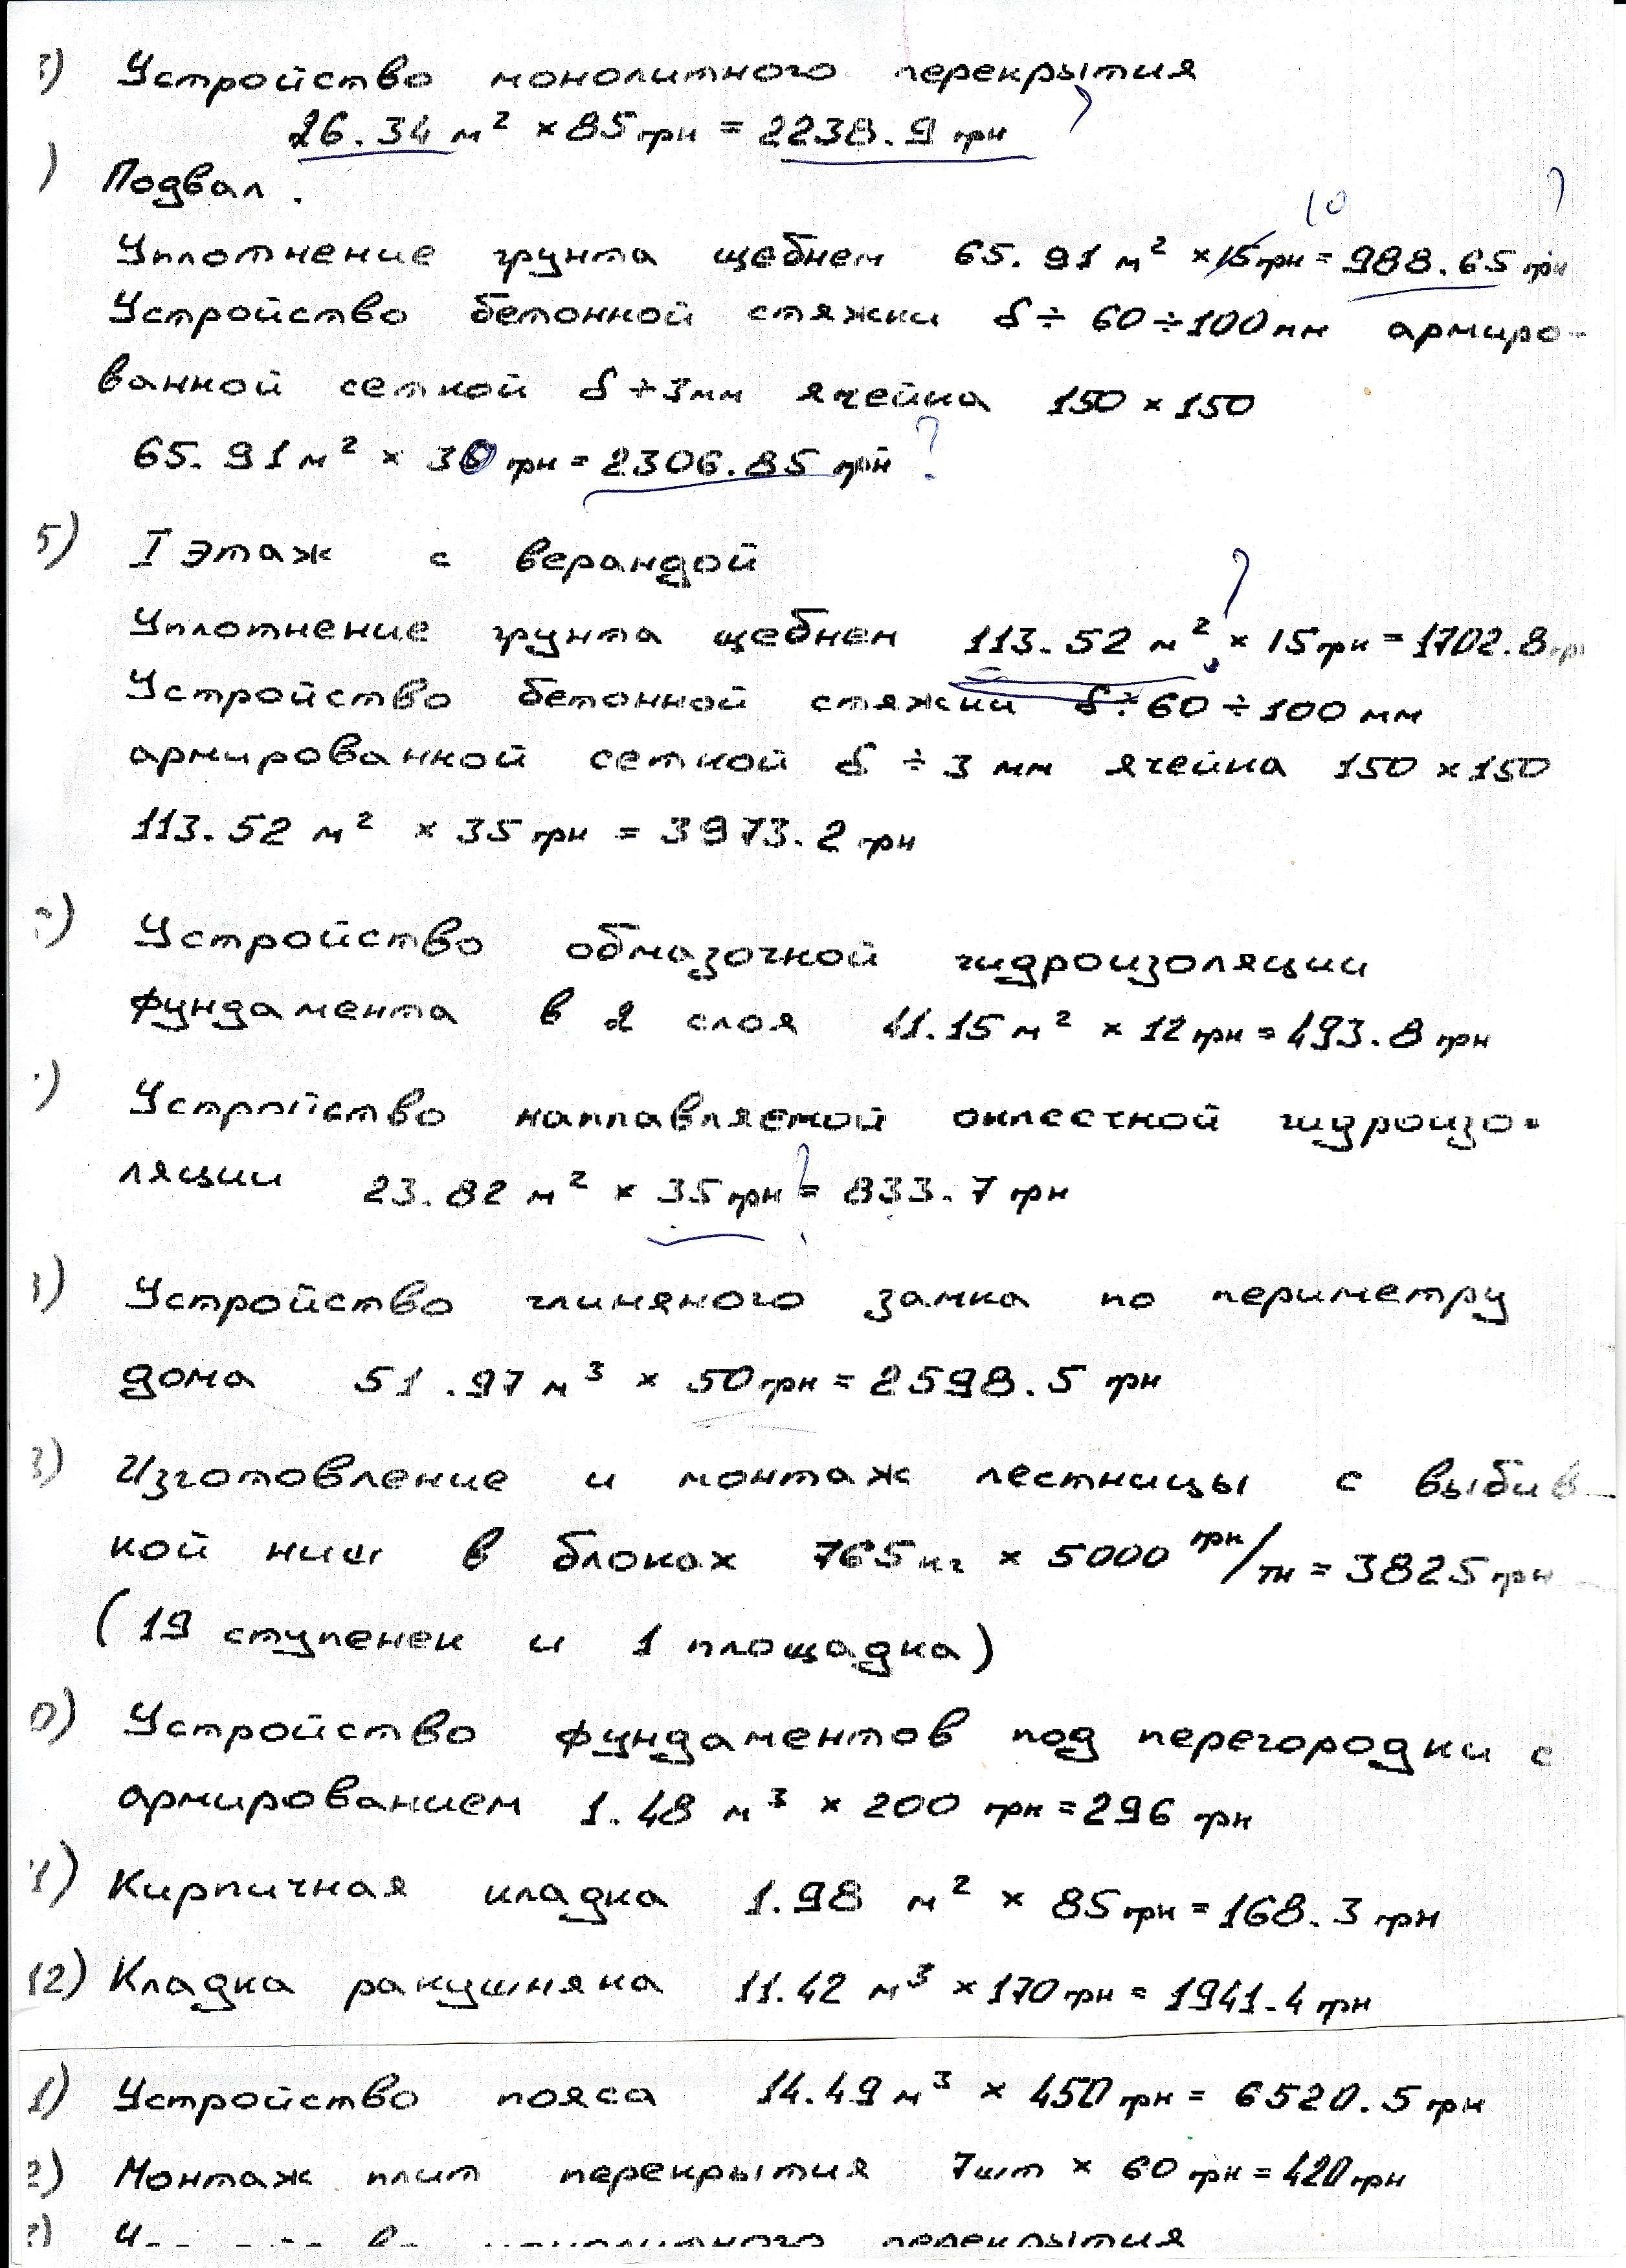 ) Устройство монолитного перекрытия
26.34 м² × 85 грн = 2238.9 грн ?
) Подвал.
10 ?
Уплотнение грунта щебнем 65.91 м² × 15 грн = 988.65 грн
Устройство бетонной стяжки δ ÷ 60 ÷ 100 мм армиро-
ванной сеткой δ ÷ 3мм ячейка 150 × 150
65.91 м² × 30 грн = 2306.85 грн ?
5) I Этаж с верандой
Уплотнение грунта щебнем 113.52 м² ? × 15 грн = 1702.8 гр
Устройство бетонной стяжки δ ÷ 60 ÷ 100 мм
армированной сеткой δ ÷ 3 мм ячейка 150 × 150
113.52 м² × 35 грн = 3973.2 грн
) Устройство обмазочной гидроизоляции
фундамента в 2 слоя 41.15 м² × 12 грн = 493.8 грн
) Устройство наплавляемой оклеечной гидроизо-
ляции 23.82 м² × 35 грн ? = 833.7 грн
) Устройство глиняного замка по периметру
дома 51.97 м³ × 50 грн = 2598.5 грн
) Изготовление и монтаж лестницы с выбив-
кой ниш в блоках 765 кг × 5000 грн/тн = 3825 грн
(19 ступенек и 1 площадка)
0) Устройство фундаментов под перегородки с
армированием 1.48 м³ × 200 грн = 296 грн
1) Кирпичная кладка 1.98 м² × 85 грн = 168.3 грн
12) Кладка ракушняка 11.42 м³ × 170 грн = 1941.4 грн
1) Устройство пояса 14.49 м³ × 450 грн = 6520.5 грн
2) Монтаж плит перекрытия 7 шт × 60 грн = 420 грн
перекрытия